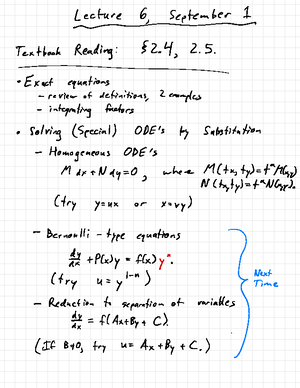 Lecture 6, September 1
Textbook Reading: §2.4, 2.5.
• Exact equations
– review of definitions, 2 examples
– integrating factors
• Solving (Special) ODE's by Substitution
– Homogeneous ODE's
M dx + N dy = 0, where M(tx, ty) = tⁿM(x,y)
N(tx, ty) = tⁿN(x,y).
(try y=ux or x=vy)
– Bernoulli-type equations
dy/dx + P(x)y = f(x) yⁿ.
(try u = y^{1-n})
– Reduction to separation of variables
dy/dx = f(Ax+By+C).
(If B≠0, try u = Ax+By+C.)
Next
Time